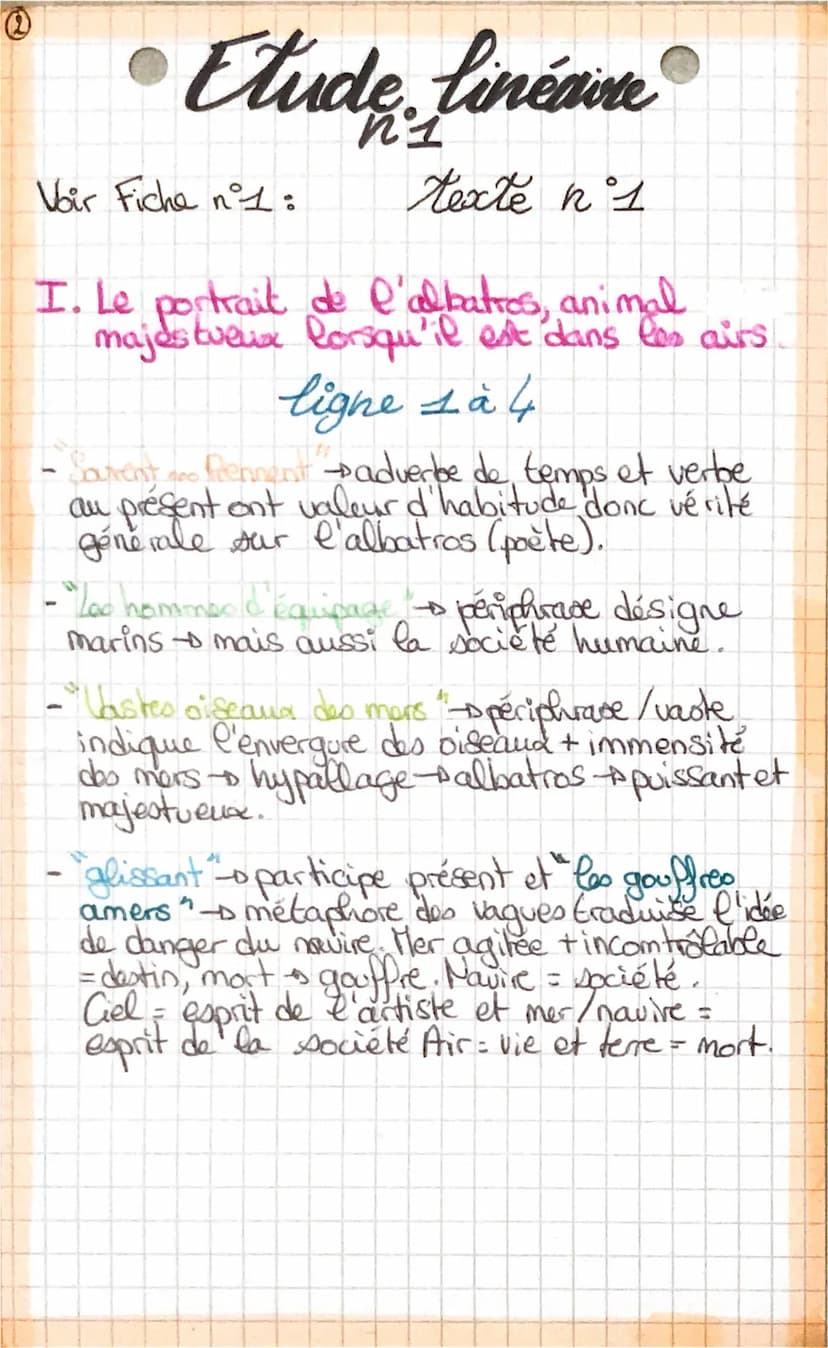 ②
Etude linéaire
n°1
Voir Fiche n°1 : texte n°1
I. Le portrait de l'albatros, animal
majestueux lorsqu'il est dans les airs.
ligne 1 à 4
- "Souvent ... Prennent" → adverbe de temps et verbe
au présent ont valeur d'habitude donc vérité
générale sur l'albatros (poète).
- "Les hommes d'équipage" → périphrase désigne
marins → mais aussi la société humaine.
- "Vastes oiseaux des mers" → périphrase / vaste
indique l'envergure des oiseaux + immensité
des mers → hypallage → albatros → puissant et
majestueux.
- "glissant" → participe présent et "les gouffres
amers" → métaphore des vagues traduise l'idée
de danger du navire. Mer agitée + incontrôlable
= destin, mort → gouffre. Navire = société.
Ciel = esprit de l'artiste et mer/navire =
esprit de la société Air = vie et terre = mort.